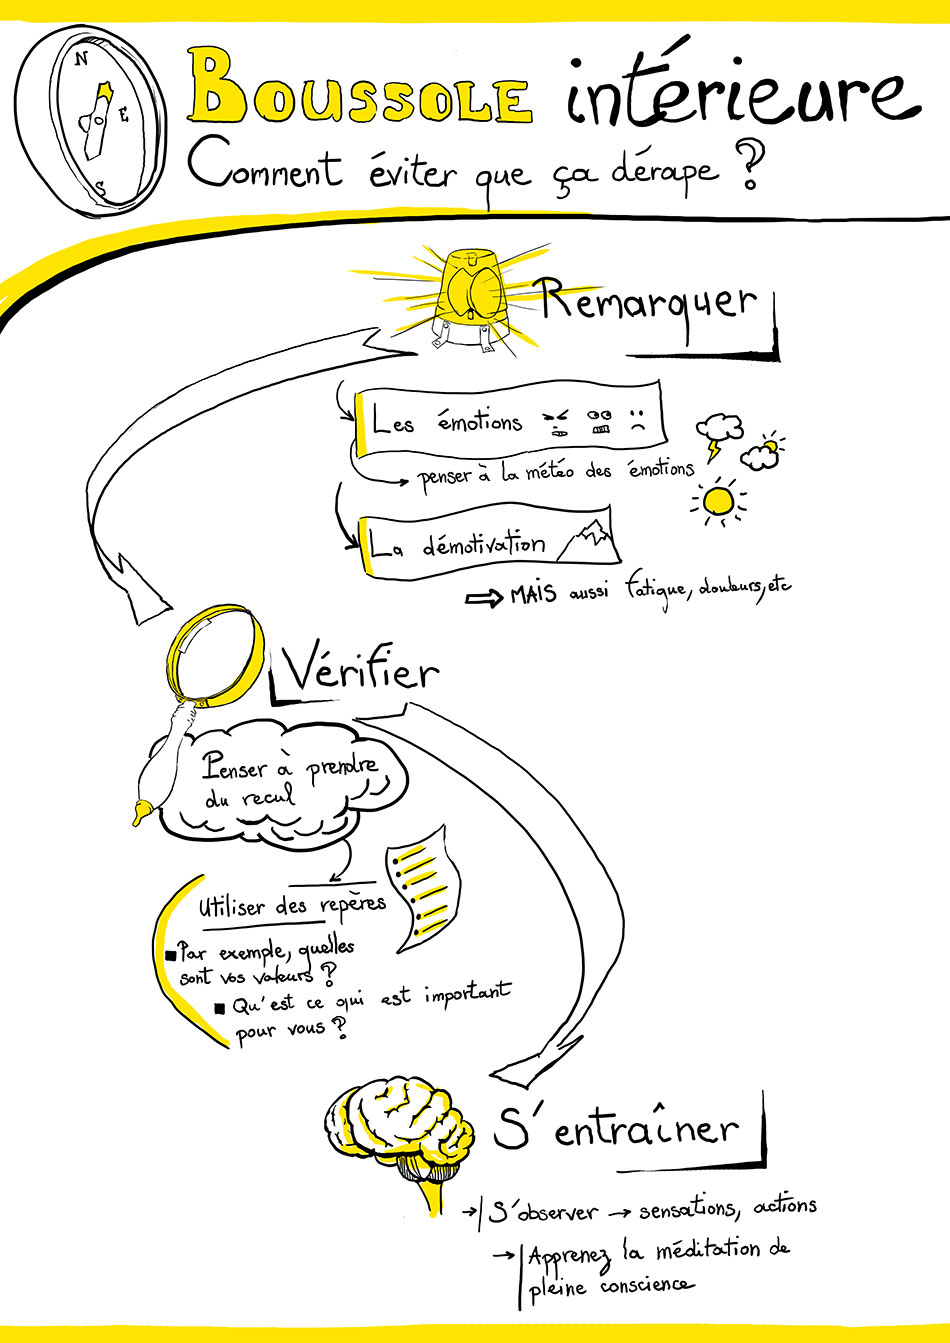 N
E
S
BOUSSOLE intérieure
Comment éviter que ça dérape ?
Remarquer
Les émotions
penser à la météo des émotions
La démotivation
MAIS aussi fatigue, douleurs, etc
Vérifier
Penser à prendre
du recul
Utiliser des repères
Par exemple, quelles
sont vos valeurs ?
Qu'est ce qui est important
pour vous ?
S'entraîner
S'observer → sensations, actions
Apprenez la méditation de
pleine conscience